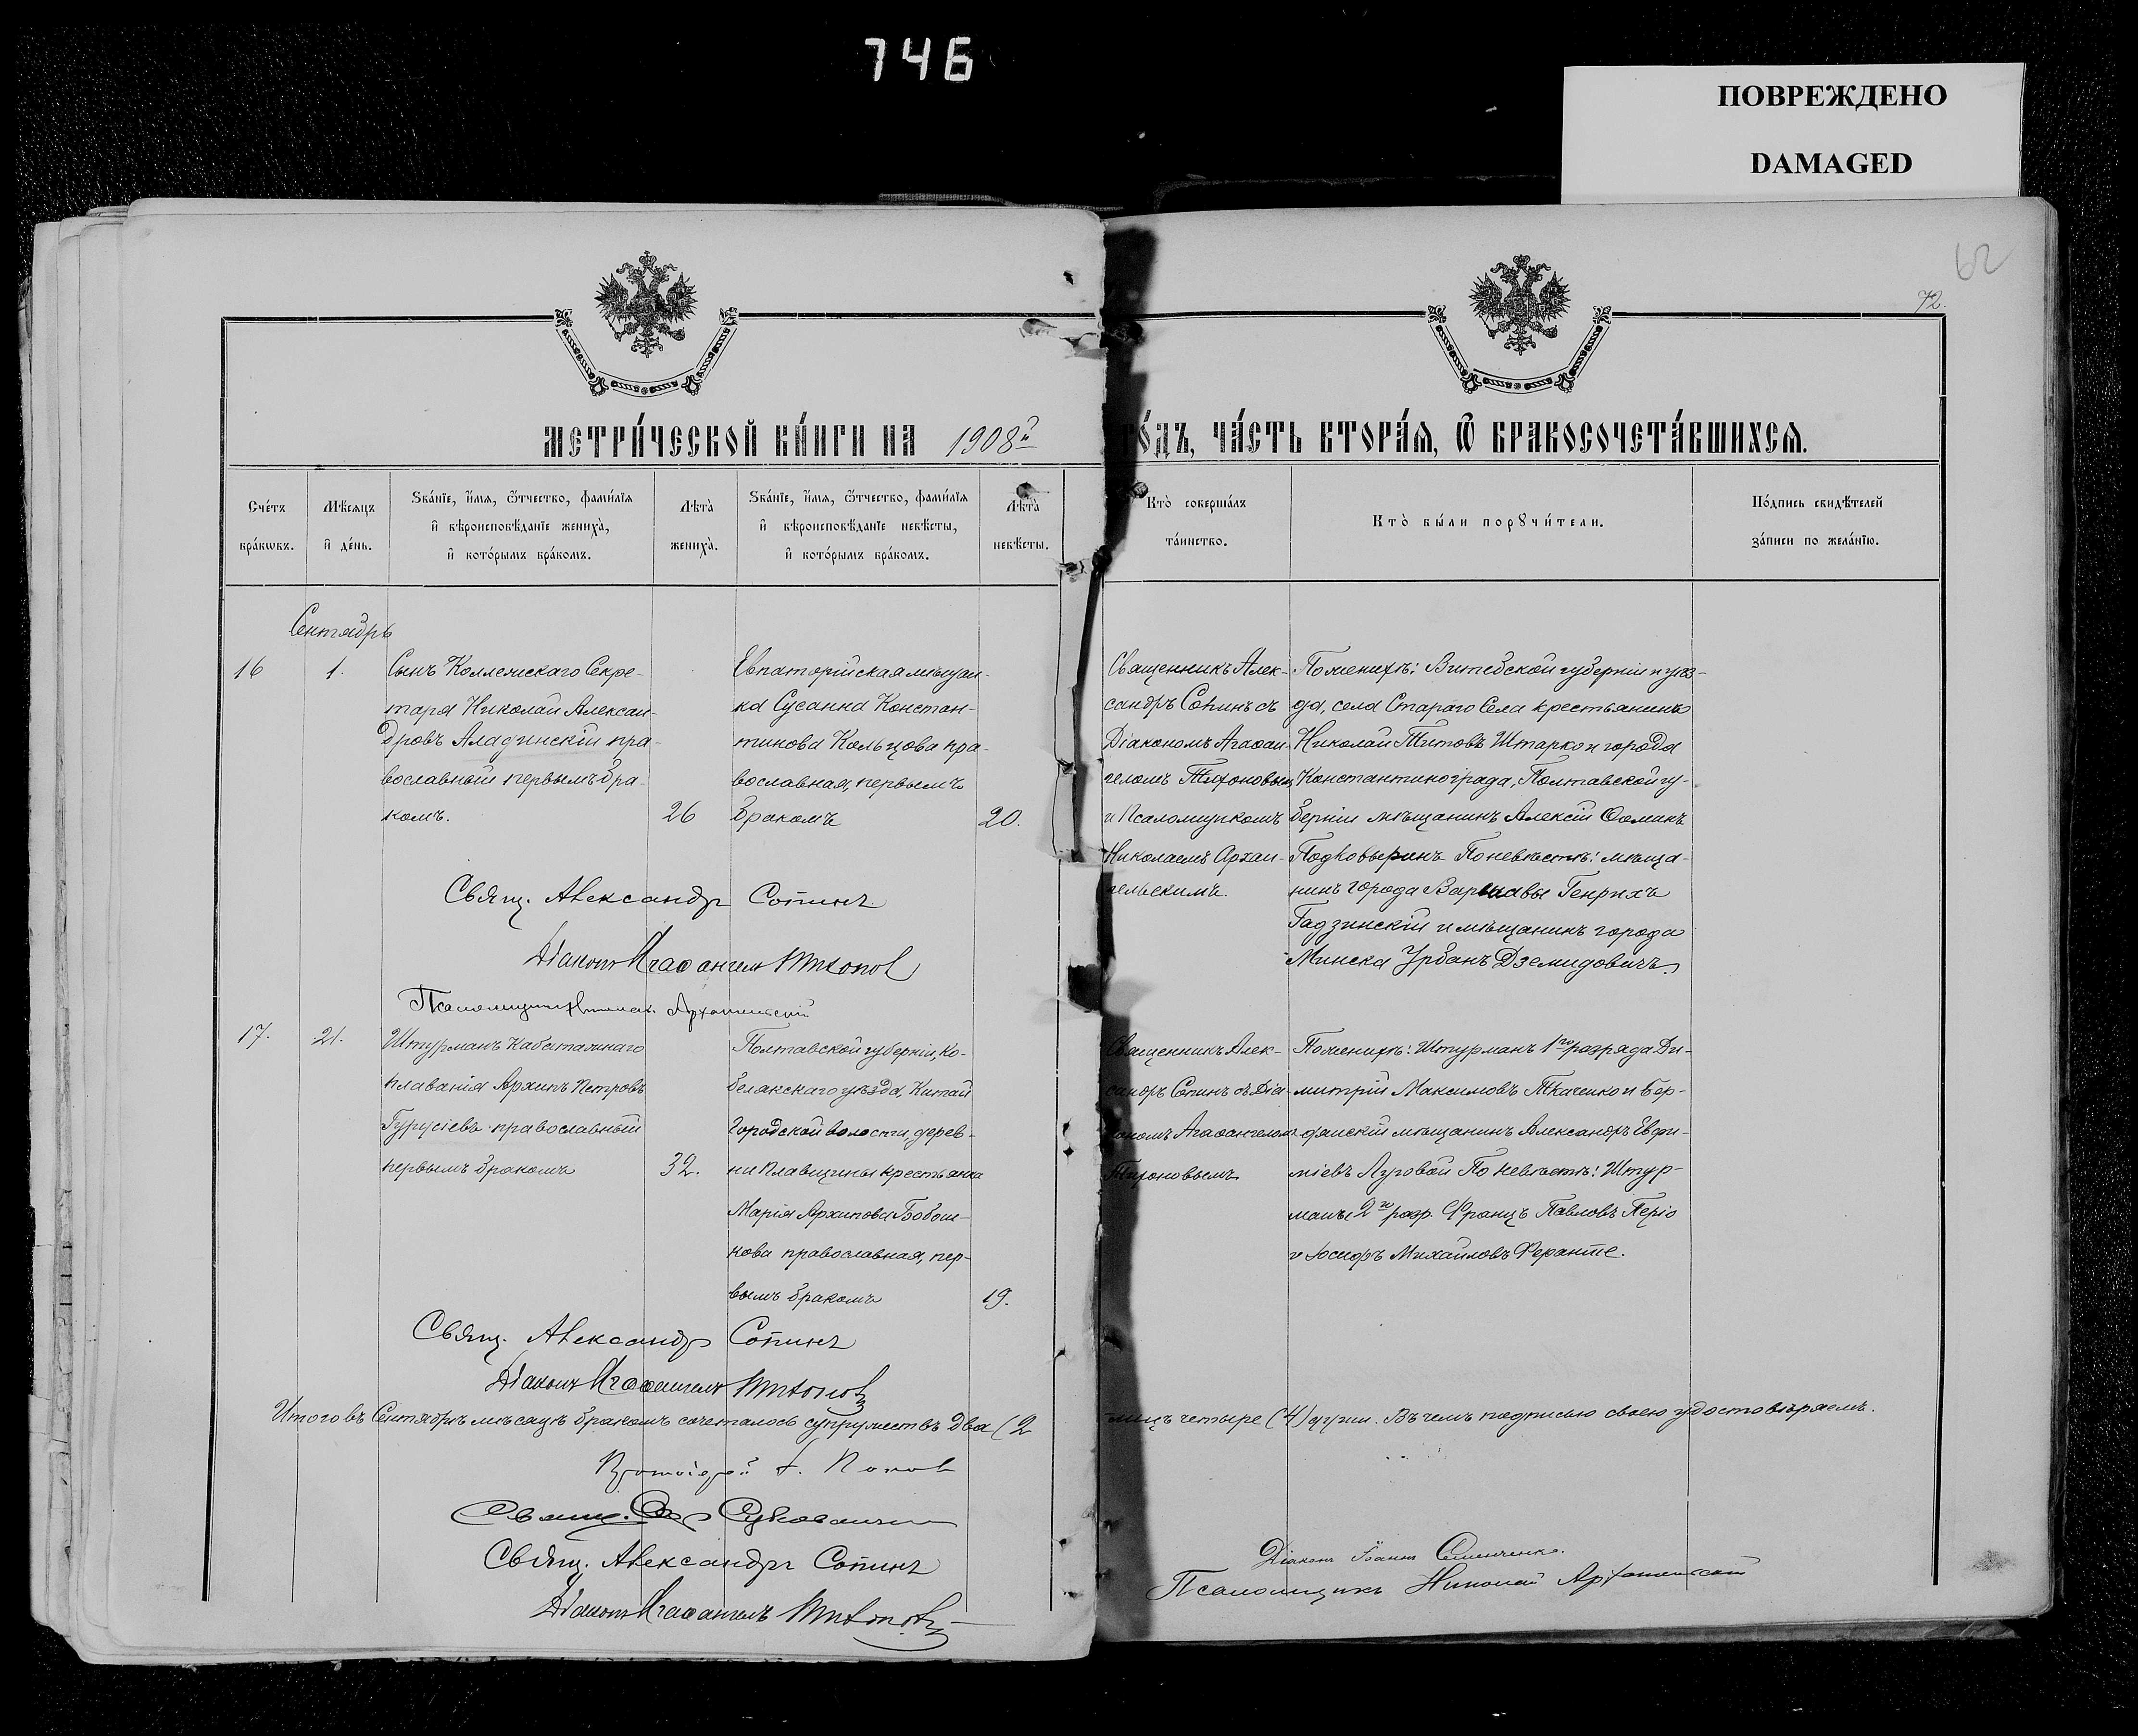 746
ПОВРЕЖДЕНО
DAMAGED
62
72.
МЕТРИ́ЧЕСКОЙ КНИ́ГИ НА 1908й ГО́ДЪ, ЧА́СТЬ ВТОРА́Я, Ѿ БРАКОСОЧЕТА́ВШИХСЯ.
Сче́тъ
бра́кѡвъ.
Мѣ́сяцъ
и҆ де́нь.
Ѕва́нїе, и҆́мя, ѻ҆́тчество, фами́лїя
и҆ вѣроисповѣ́данїе жениха̀,
и҆ кото́рымъ бра́комъ.
Лѣта̀
жениха̀.
Ѕва́нїе, и҆́мя, ѻ҆́тчество, фами́лїя
и҆ вѣроисповѣ́данїе невѣ́сты,
и҆ кото́рымъ бра́комъ.
Лѣта̀
невѣ́сты.
Кто̀ соверша́лъ
та́инство.
Кто̀ бы́ли порꙋчи́тели.
По́дпись свидѣ́телей
за́писи по жела́нїю.
Сентябрь
16
1.
Сынъ Коллежскаго Секре-
таря Николай Алексан-
дровъ Аладинскій пра-
вославный первымъ бра-
комъ.
26
Евпаторійская мѣщан-
ка Сусанна Констан-
тинова Кольцова пра-
вославная, первымъ
бракомъ
20.
Священникъ Алек-
сандръ Сопинъ съ
Діакономъ Агаѳан-
геломъ Тихоновымъ
и Псаломщикомъ
Николаемъ Архан-
гельскимъ.
По женихѣ: Витебской губерніи и уѣз-
да, села Стараго Села крестьянинъ
Николай Титовъ Штарко и города
Константинограда, Полтавской гу-
берніи мѣщанинъ Алексій Ѳоминъ
Подковыринъ По невѣстѣ: мѣща-
нинъ города Варшавы Генрихъ
Гадзинскій и мѣщанинъ города
Минска Урбанъ Дземидовичъ.
Свящ. Александр Сопинъ
Діаконъ Агаѳангелъ Тихонов
Псаломщикъ Николай Архангельскій
17.
21.
Штурманъ Каботажнаго
плаванія Архипъ Петровъ
Гурусіевъ православный
первымъ бракомъ
32.
Полтавской губерніи, Ко-
белякскаго уѣзда, Китай
Городской волости, дерев-
ни Плавищины крестьянка
Марія Архипова Бобош-
кова православная, пер-
вымъ бракомъ
19.
Священникъ Алек-
сандръ Сопинъ съ Діа-
кономъ Агаѳангеломъ
Тихоновымъ
По женихѣ: Штурманъ 1го разряда Ди-
митрій Максимовъ Ткаченко и Бер-
дянскій мѣщанинъ Александръ Евфи-
міевъ Луговой По невѣстѣ: Штур-
маны 2го разр. Францъ Павловъ Перiо
и Іосифъ Михайловъ Феранте.
Свящ. Александр Сопинъ
Діаконъ Агаѳангелъ Тихоновъ
Итого въ Сентябрѣ мѣсяцѣ бракомъ сочеталось супружествъ два (2
лицъ четыре (4) души. Въ чемъ подписью своею удостовѣряемъ.
Протоіерей А. Попов
Свящ.
Свящ. Александръ Сопинъ
Діаконъ Агаѳангелъ Тихоновъ
Діаконъ Іоаннъ Семенченко.
Псаломщикъ Николай Архангельскій